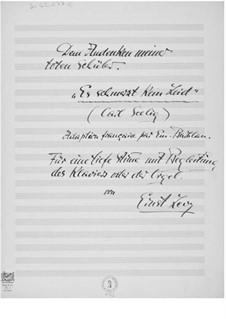 Dem Andenken meiner
toten Schüler.
"Es schmerzt kein Leid"
(Carl Seelig)
Adaption française par Em. Barblan.
Für eine tiefe Stimme mit Begleitung
des Klaviers oder der Orgel
von
Ernst Levy